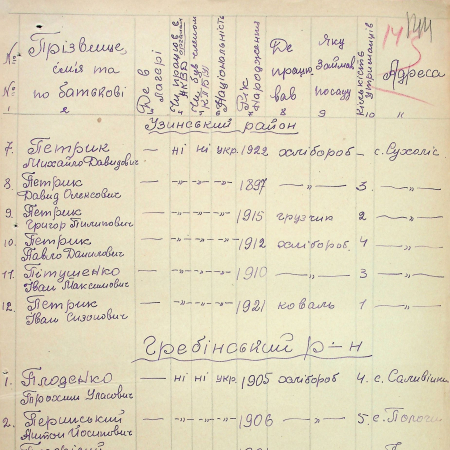 №№ Прізвище, ім'я та по батькові
Де в лагері
Національність
Рік народження
Де працював
Яку займав посаду
Кількість утриманців
Адреса
1 2 8 9 10 11
Узинський район
7. Петрик Михайло Давидович — ні ні укр. 1922 хлібороб — с. Сухоліс
8. Петрик Давид Олексович — -"- -"- -"- 1897 —"— 3 —"—
9. Петрик Григор Пилипович — -"- -"- -"- 1915 грузчик 2 —"—
10. Петрик Павло Данилович — -"- -"- -"- 1912 хлібороб 4 —"—
11. Пітушенко Іван Максимович — -"- -"- -"- 1910 —"— 3 —"—
12. Петрик Іван Сизонович — -"- -"- -"- 1921 коваль 1 —"—
Гребінський р-н
1. Плоденко Трохим Уласович — ні ні укр. 1905 хлібороб 4. с.
2. Перинський Антон Йосипович — -"- -"- -"- 1906 —"— 5. с.